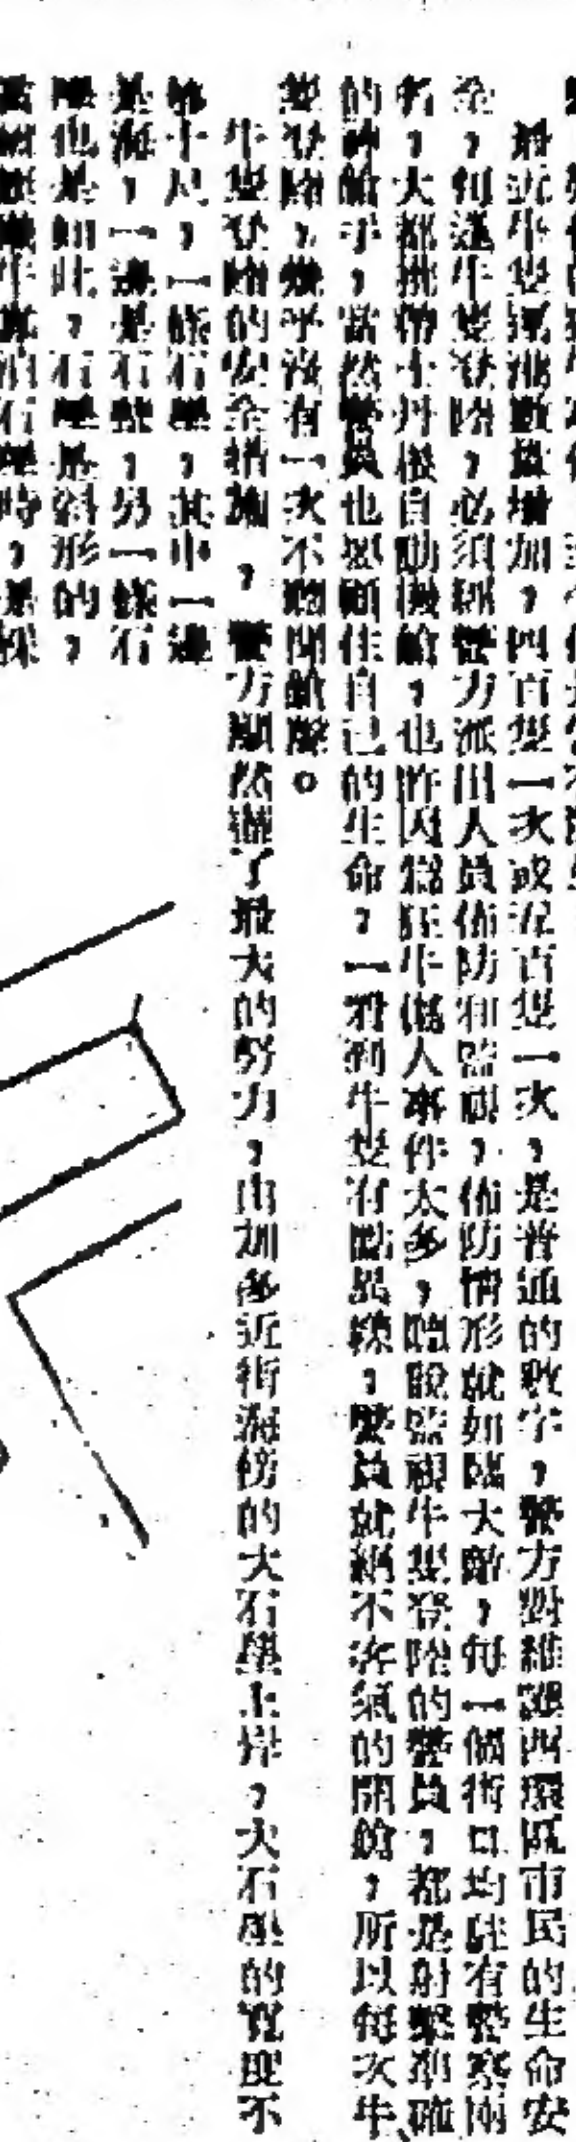 最近牛隻運港數量增加，四百隻一次或五百隻一次，是普通的數字，警方對維護西環區市民的生命安
全，每逢牛隻登陸，必須經警方派出人員佈防和監視，佈防情形就如臨大敵，每一個街口均駐有警察兩
名，大都挑帶士丹後自動機鎗，也許因為狂牛傷人事件太多，隨股監視牛隻登陸的警員，都是射擊準確
的神鎗手，當然警員也要顧住自己的生命，一看到牛隻有點異樣，警員就絕不客氣的開鎗，所以每次牛
隻登陸，幾乎沒有一次不聽聞鎗聲。
牛隻登陸的安全措施，警方顯然盡了最大的努力，由加多近街海傍的大石壆上岸，大石壆的寬度不
夠十尺，一條石壆，其中一邊
是海，一邊是石壁，另一條石
壆也是如此，石壆是斜形的，